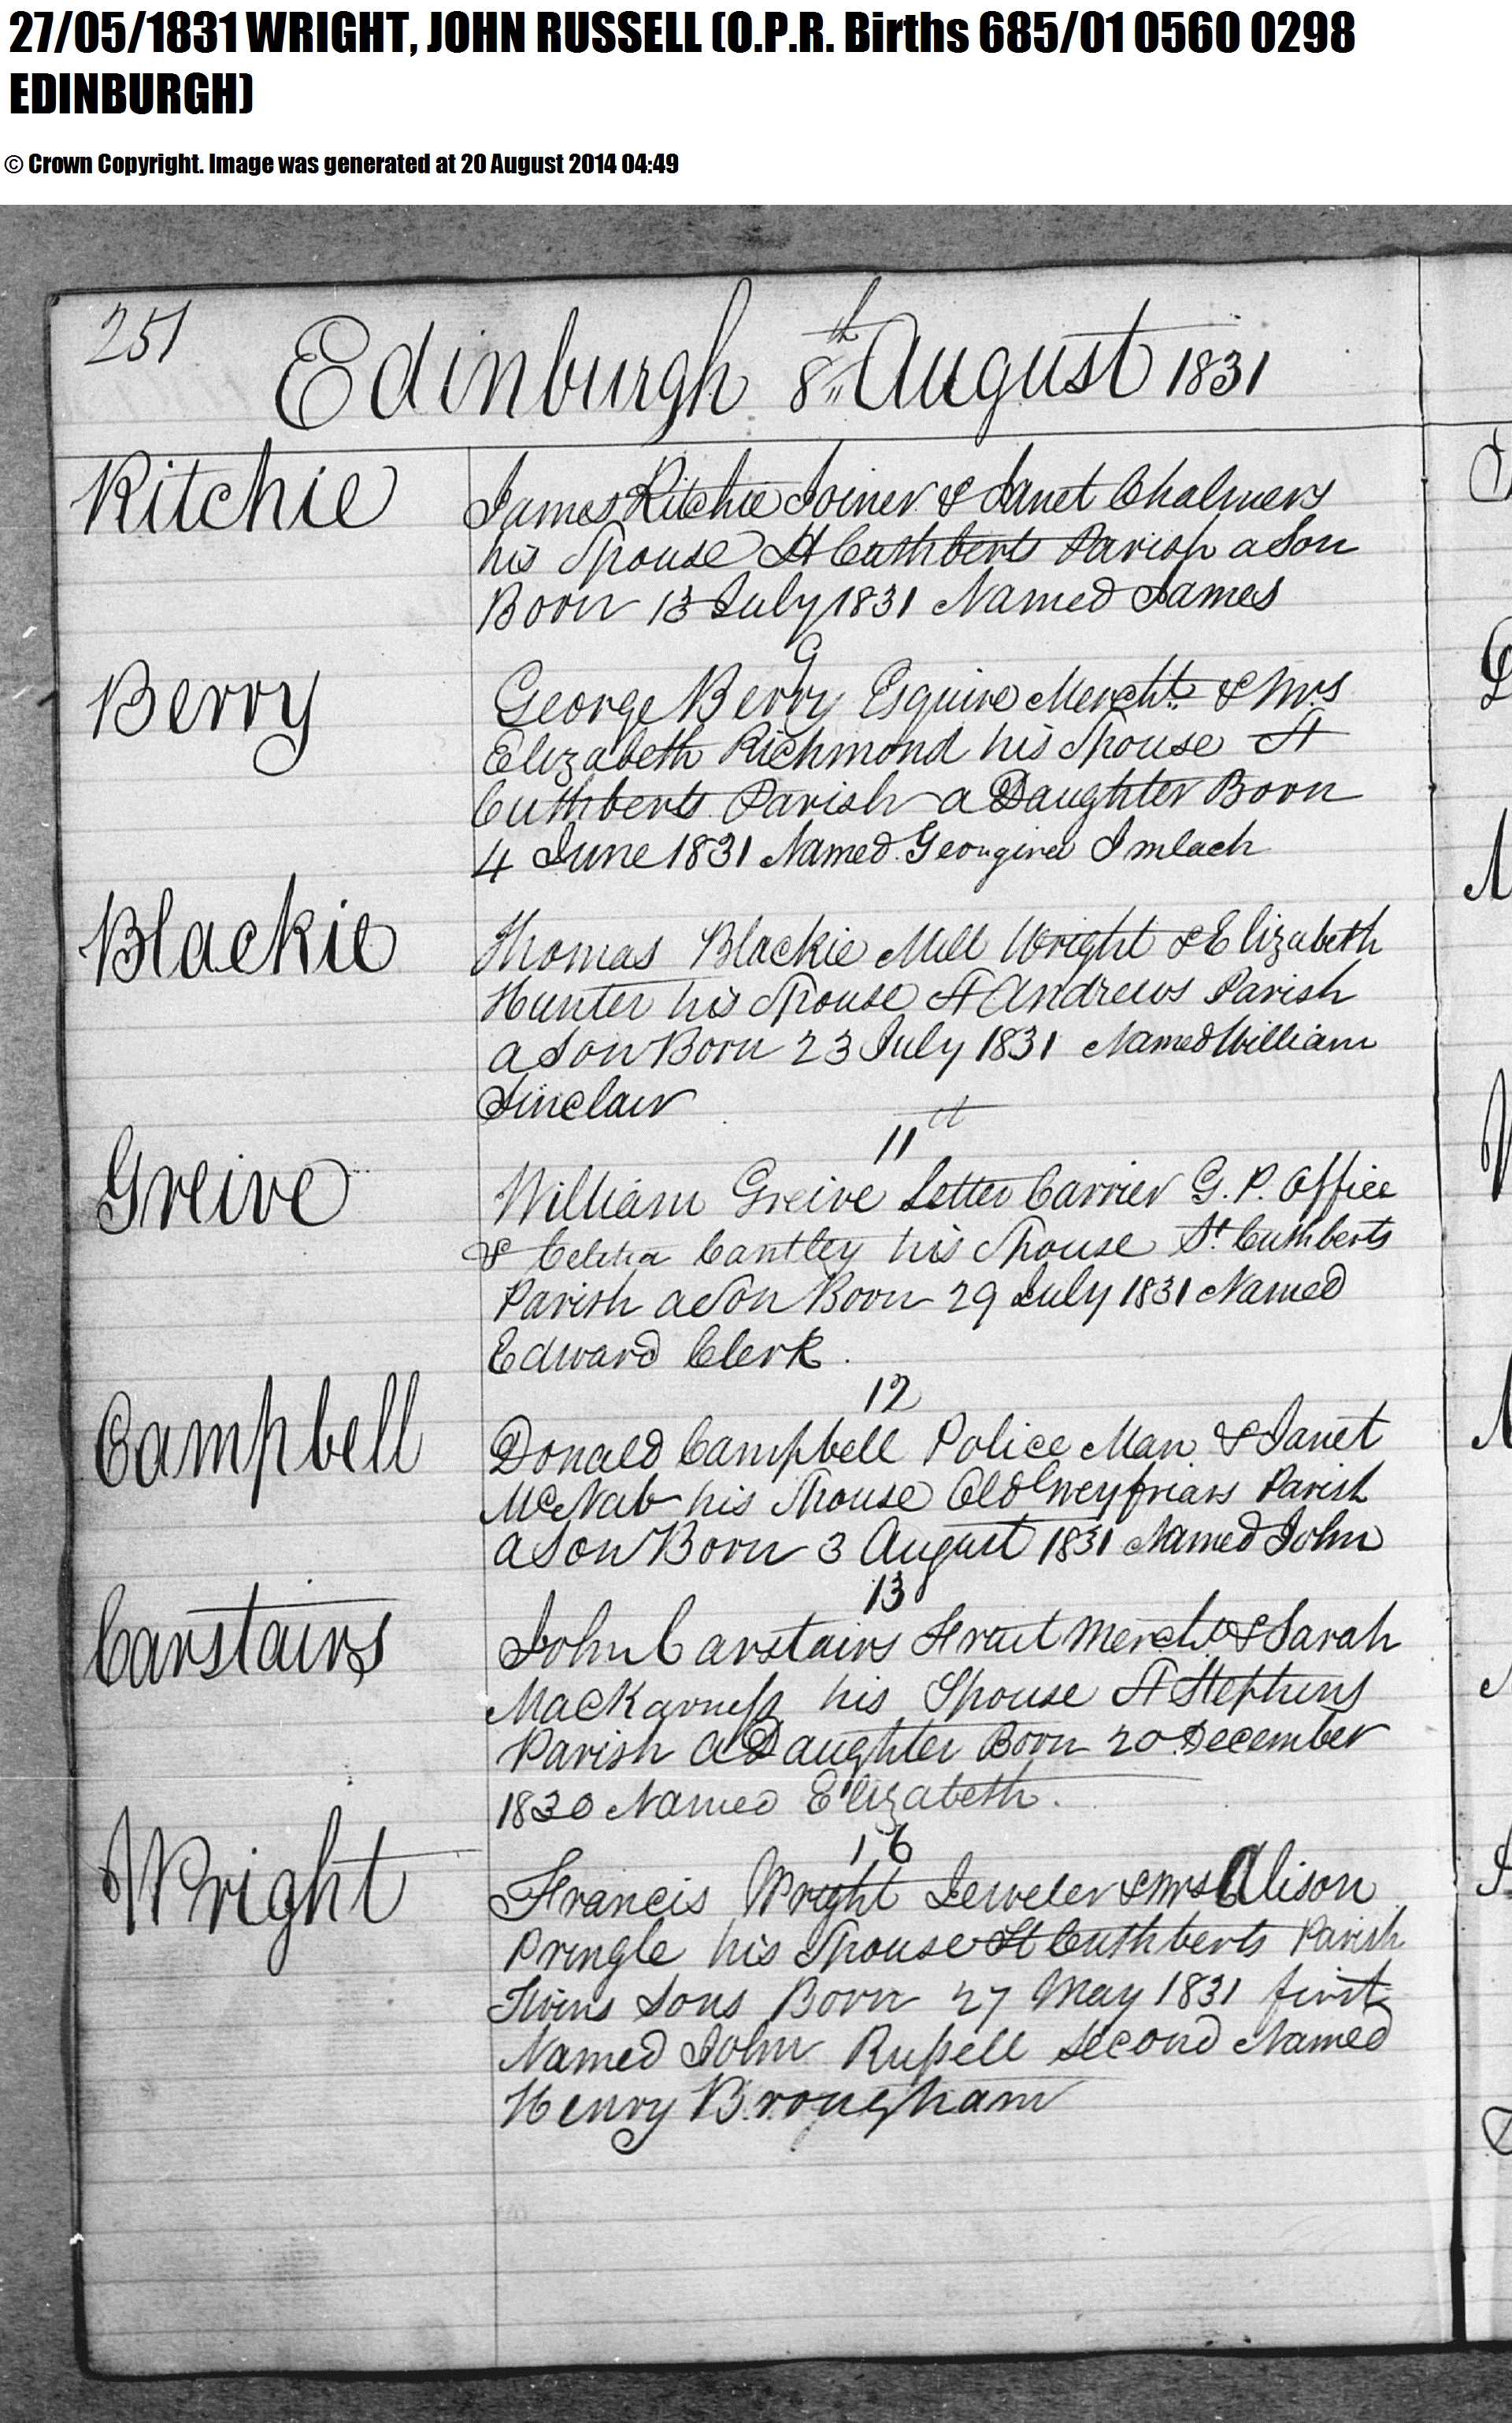 27/05/1831 WRIGHT, JOHN RUSSELL (O.P.R. Births 685/01 0560 0298
EDINBURGH)
© Crown Copyright. Image was generated at 20 August 2014 04:49
251
Edinburgh 8th August 1831
Ritchie
James Ritchie Joiner & Janet Chalmers
his Spouse St Cuthberts Parish a Son
Born 13 July 1831 Named James
9
Berry
George Berry Esquire Mercht. & Mrs
Elizabeth Richmond his Spouse St
Cuthberts Parish a Daughter Born
4 June 1831 Named Georgina Imlach
Blackie
Thomas Blackie Mill Wright & Elizabeth
Hunter his Spouse St Andrews Parish
a Son Born 23 July 1831 Named William
Sinclair
11th
Greive
William Greive Letter Carrier G. P. Office
& Cantley his Spouse St. Cuthberts
Parish a Son Born 29 July 1831 Named
Edward Clerk.
12
Campbell
Donald Campbell Police Man & Janet
McNab his Spouse Old Greyfriars Parish
a Son Born 3 August 1831 Named John
13
Carstairs
John Carstairs Fruit Mercht & Sarah
MacKarness his Spouse St Stephens
Parish a Daughter Born 20 December
1830 Named Elizabeth.
16
Wright
Francis Wright Jeweler & Mrs Alison
Pringle his Spouse St Cuthberts Parish
Twins Sons Born 27 May 1831 first
Named John Russell Second Named
Henry Brougham